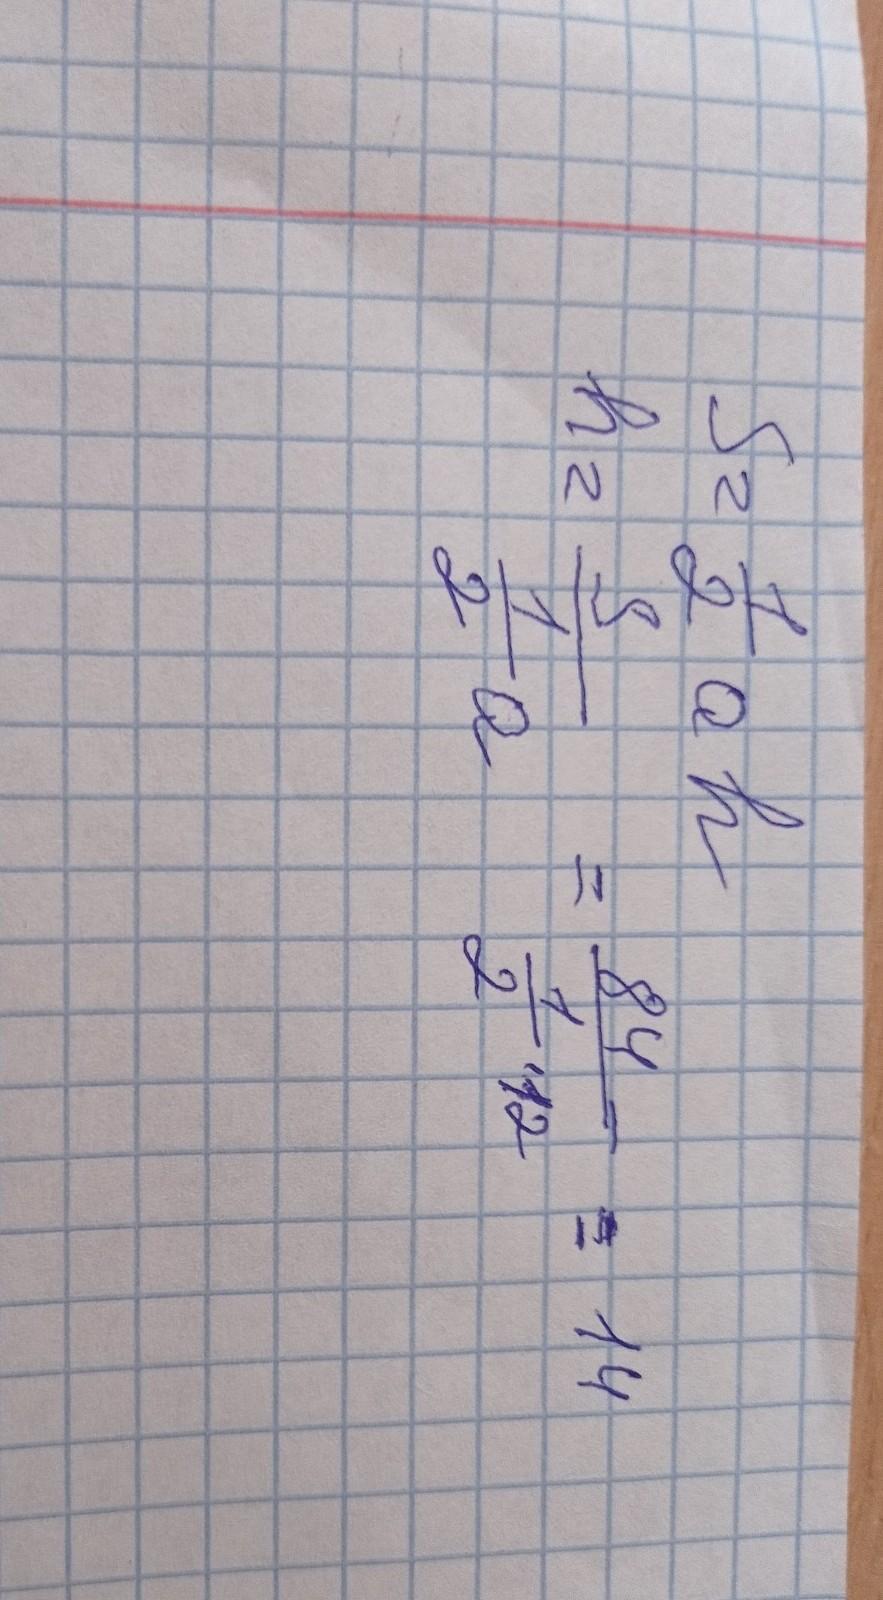 S = 1/2 a h
h = S / (1/2 a) = 84 / (1/2 · 12) = 14